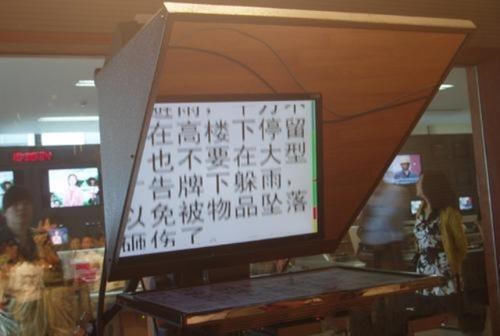 在高楼下停留
也不要在大型
告牌下躲雨，
以免被物品坠落
砸伤了